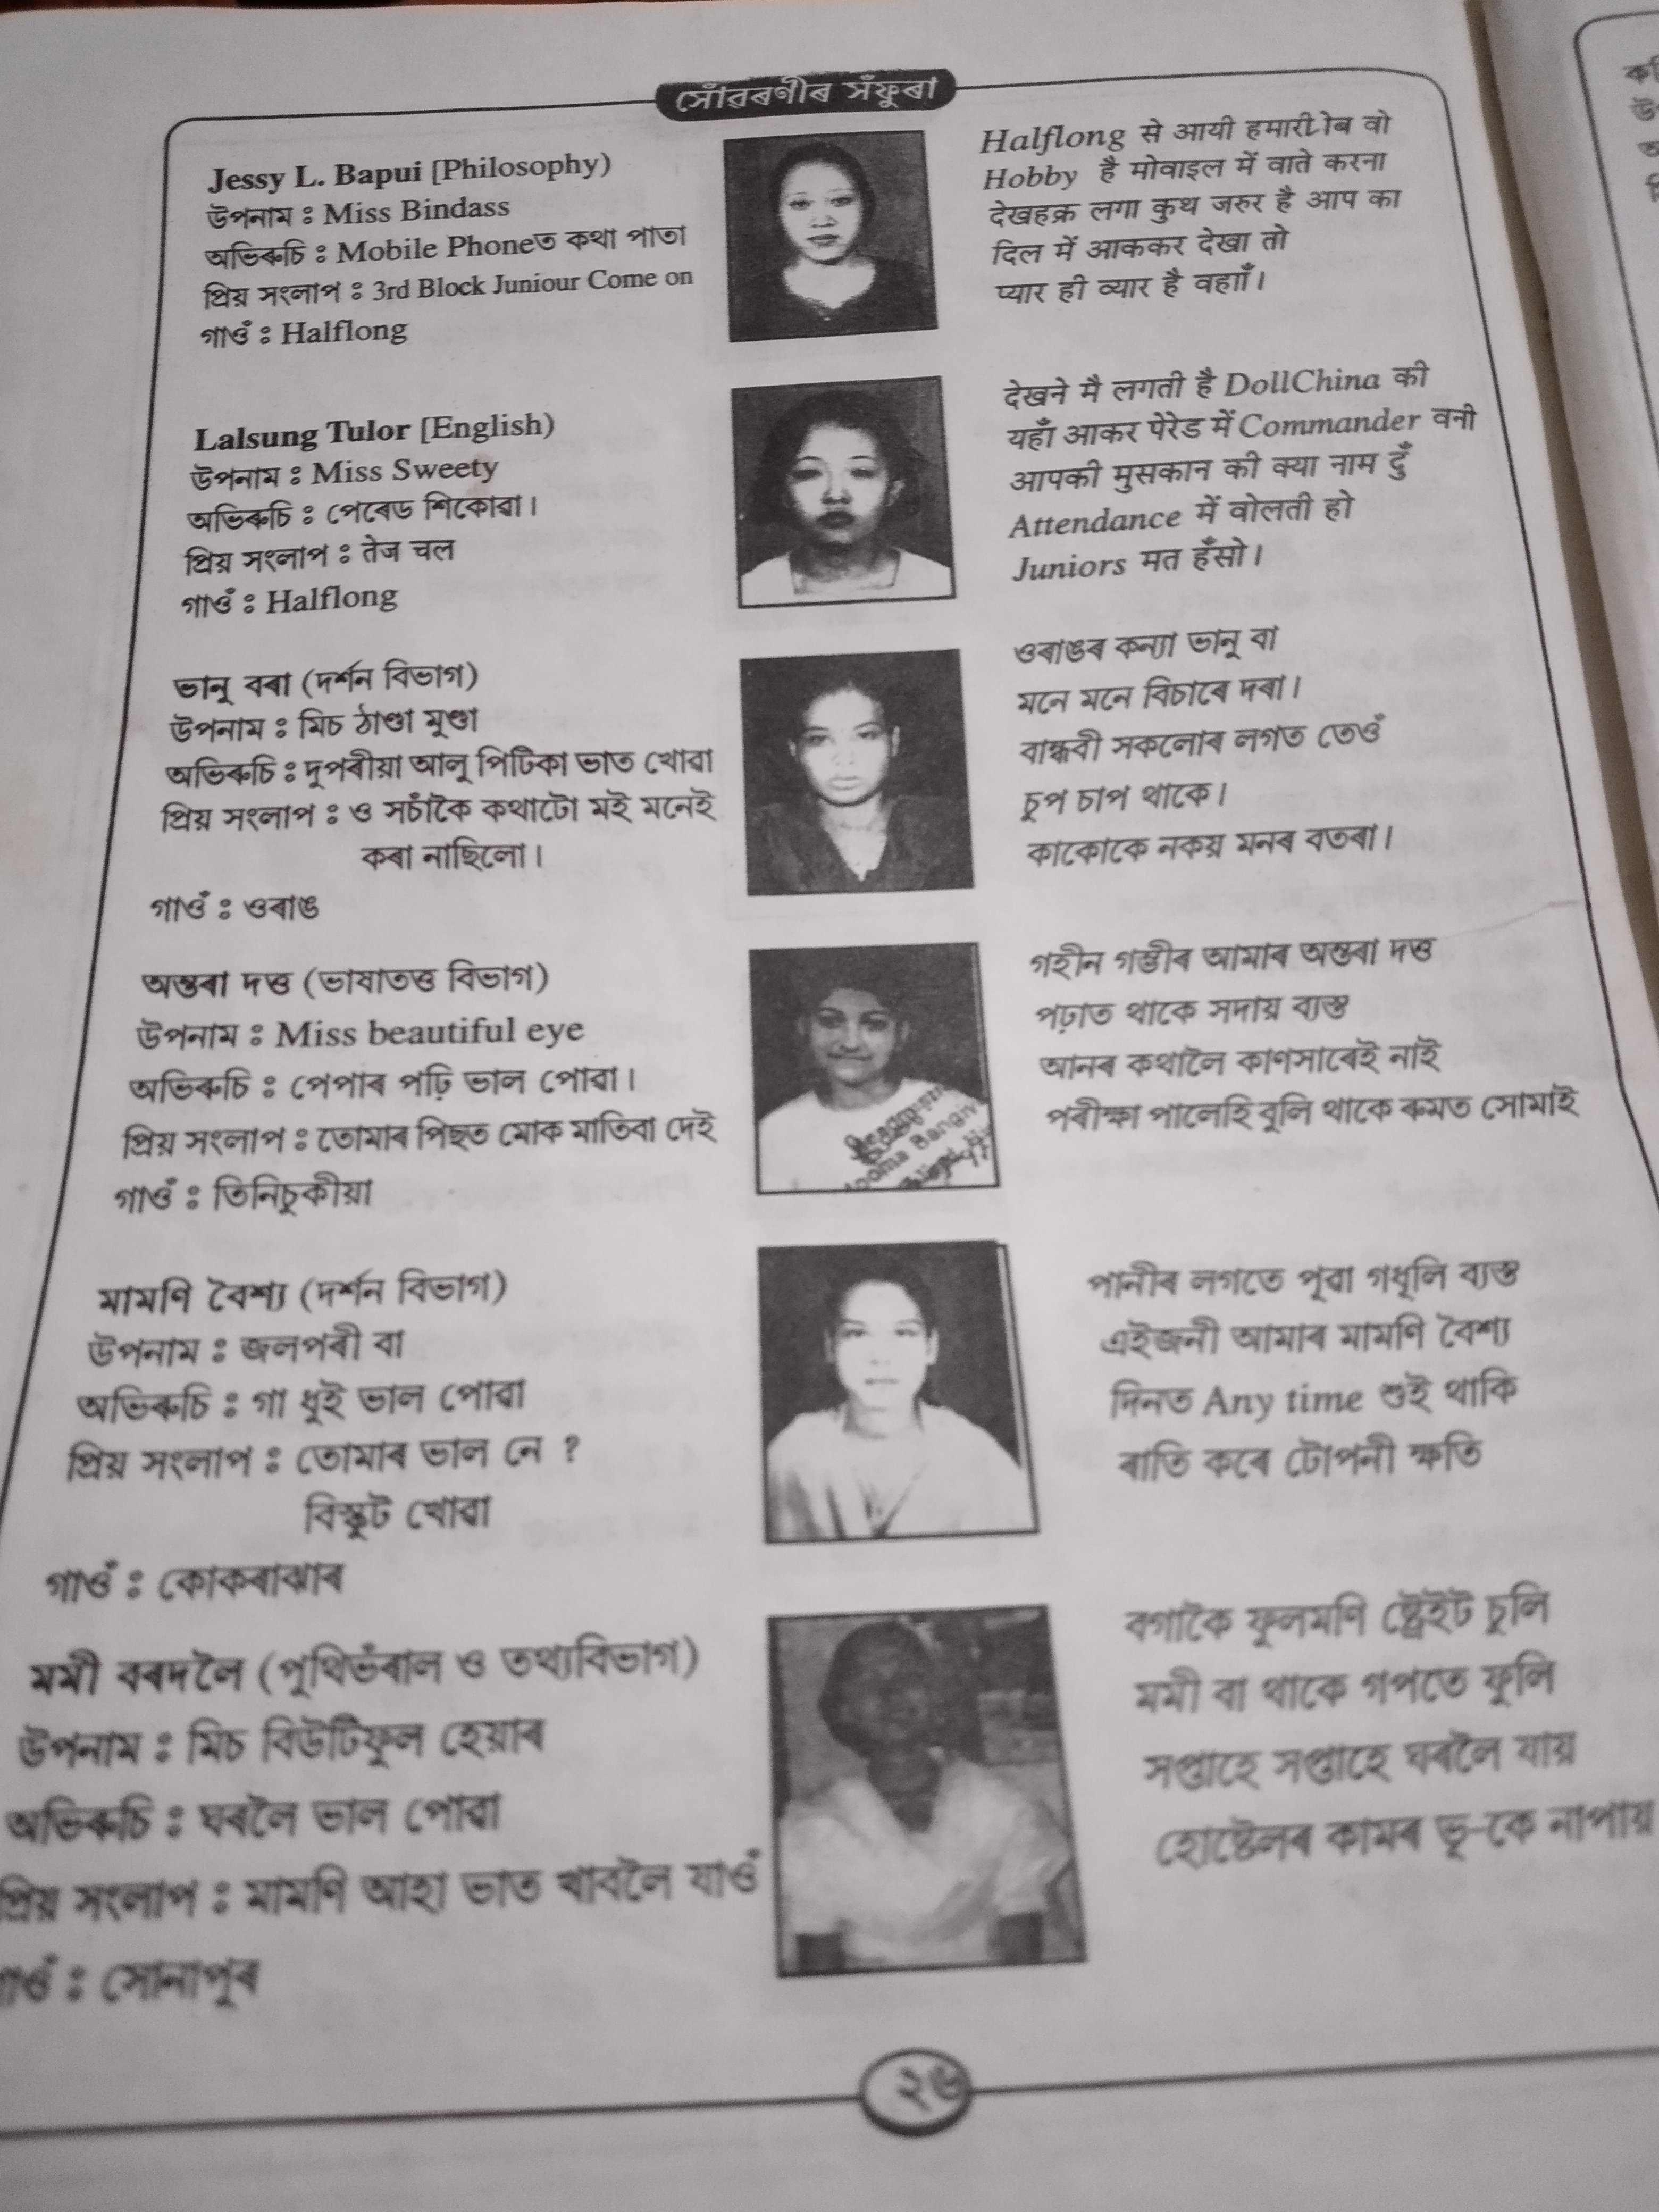 সোঁৱৰণীৰ সঁফুৰা
Jessy L. Bapui [Philosophy)
উপনাম : Miss Bindass
অভিৰুচি : Mobile Phoneত কথা পাতা
প্ৰিয় সংলাপ : 3rd Block Juniour Come on
গাওঁ : Halflong
Halflong से आयी हमारी वो
Hobby है मोवाइल में वाते करना
लगा कुथ जरुर है आप का
दिल में आककर देखा तो
प्यार ही व्यार है वहाँ।
Lalsung Tulor [English)
উপনাম : Miss Sweety
অভিৰুচি : পেৰেড শিকোৱা।
প্ৰিয় সংলাপ : तेज चल
গাওঁ : Halflong
देखने मै लगती है DollChina की
यहाँ आकर पेरेड में Commander वनी
आपकी मुसकान की क्या नाम दुँ
Attendance में वोलती हो
Juniors मत हँसो।
ভানু বৰা (দৰ্শন বিভাগ)
উপনাম : মিচ ঠাণ্ডা মুণ্ডা
অভিৰুচি : দুপৰীয়া আলু পিটিকা ভাত খোৱা
প্ৰিয় সংলাপ : ও সচাঁকৈ কথাটো মই মনেই
কৰা নাছিলো।
গাওঁ : ওৰাঙ
ওৰাঙৰ কন্যা ভানু বা
মনে মনে বিচাৰে দৰা।
বান্ধবী সকলোৰ লগত তেওঁ
চুপ চাপ থাকে।
কাকোকে নকয় মনৰ বতৰা।
অন্তৰা দত্ত (ভাষাতত্ত বিভাগ)
উপনাম : Miss beautiful eye
অভিৰুচি : পেপাৰ পঢ়ি ভাল পোৱা।
প্ৰিয় সংলাপ : তোমাৰ পিছত মোক মাতিবা দেই
গাওঁ : তিনিচুকীয়া
গহীন গম্ভীৰ আমাৰ অন্তৰা দত্ত
পঢ়াত থাকে সদায় ব্যস্ত
আনৰ কথালৈ কাণসাৰেই নাই
পৰীক্ষা পালেহি বুলি থাকে ৰুমত সোমাই
মামণি বৈশ্য (দৰ্শন বিভাগ)
উপনাম : জলপৰী বা
অভিৰুচি : গা ধুই ভাল পোৱা
প্ৰিয় সংলাপ : তোমাৰ ভাল নে ?
বিস্কুট খোৱা
গাওঁ : কোকৰাঝাৰ
পানীৰ লগতে পূৱা গধূলি ব্যস্ত
এইজনী আমাৰ মামণি বৈশ্য
দিনত Any time শুই থাকি
ৰাতি কৰে টোপনী ক্ষতি
মমী বৰদলৈ (পুথিভঁৰাল ও তথ্যবিভাগ)
উপনাম : মিচ বিউটিফুল হেয়াৰ
অভিৰুচি : ঘৰলৈ ভাল পোৱা
প্ৰিয় সংলাপ : মামণি আহা ভাত খাবলৈ যাওঁ
গাওঁ : সোনাপুৰ
বগাকৈ ফুলমণি ষ্ট্ৰেইট চুলি
মমী বা থাকে গপতে ফুলি
সপ্তাহে সপ্তাহে ঘৰলৈ যায়
হোষ্টেলৰ কামৰ ভূ-কে নাপায়
২৬